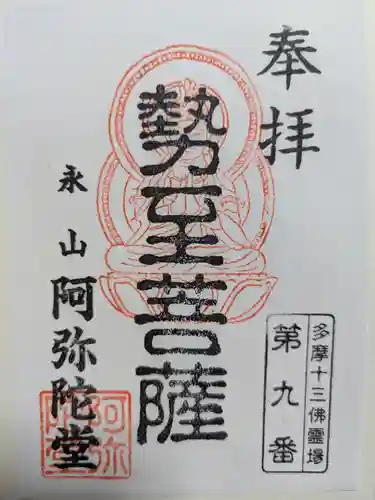 奉拝
勢至菩薩
永山
阿弥陀堂
多摩十三佛霊場
第九番
阿弥
陀堂